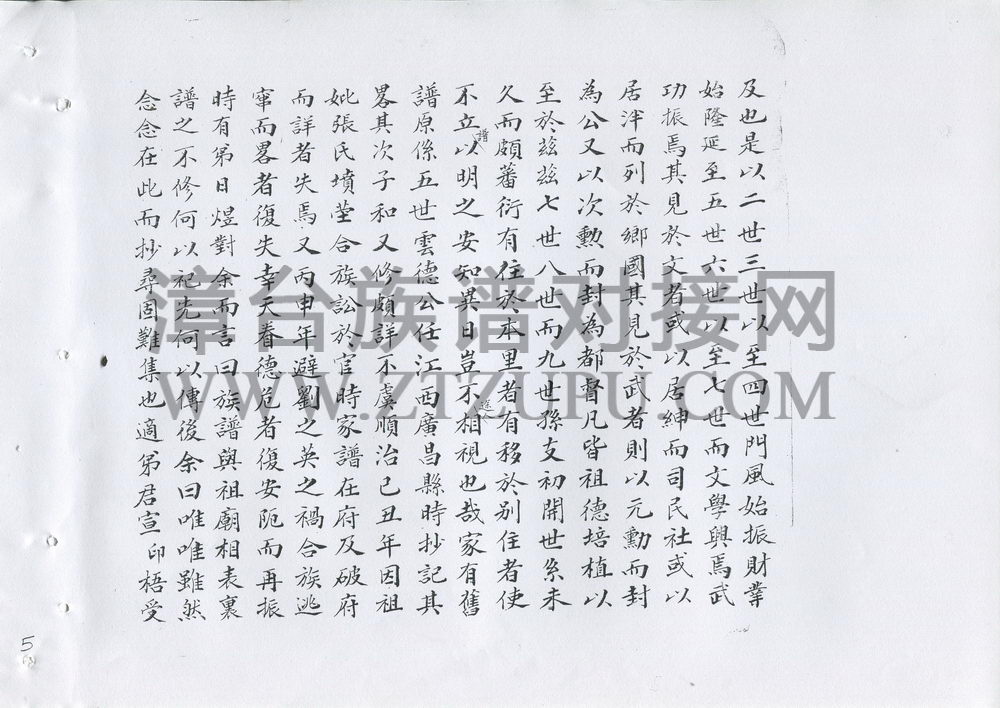 及也是以二世三世以至四世門風始振財業
始隆延至五世六世以至七世而文學興焉武
功振焉其見於文者或以居紳而司民社或以
居泮而列於鄉國其見於武者則以元勳而封
為公又以次勲而封為都督凡皆祖德培植以
至於茲茲七世八世而九世孫支初開世系未
久而頗蕃衍有住於本里者有移於别住者使
不立譜以明之安知異日豈不途相視也哉家有舊
譜原係五世雲德公任江西廣昌縣時抄記其
畧其次子和又修頗詳不虞順治己丑年因祖
妣張氏墳塋合族訟於官時家譜在府及破府
而詳者失焉又丙申年避劉之英之禍合族逃
窜而畧者復失幸天眷德危者復安阨而再振
時有弟日煜對余而言曰族譜與祖廟相表裏
譜之不修何以祀先何以傳後余曰唯唯雖然
念念在此而抄尋固難集也適弟君宣印梧受
漳台族谱对接网
WWW.ZTZUPU.COM
5